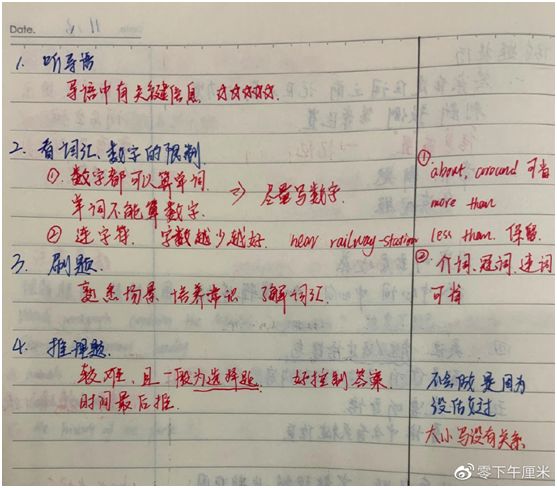 Date. 11.6
Date.
1. 听导语
导语中有关键信息 ☆☆☆☆☆.
2. 看词汇、数字的限制
①. 数字都可以算单词. ⇒ 尽量写数字.
单词不能算数字.
② 连字符. 字数越少越好. near railway-station
① about, around 可省
more than
less than. 保留.
② 介词、冠词、连词
可省
3. 刷题.
熟悉场景 培养常识 了解词汇
4. 推理题.
较难, 且一般为选择题. 好控制答案
时间最后推.
不会做是因为
没估复过
大小写没有关系
零下午厘米